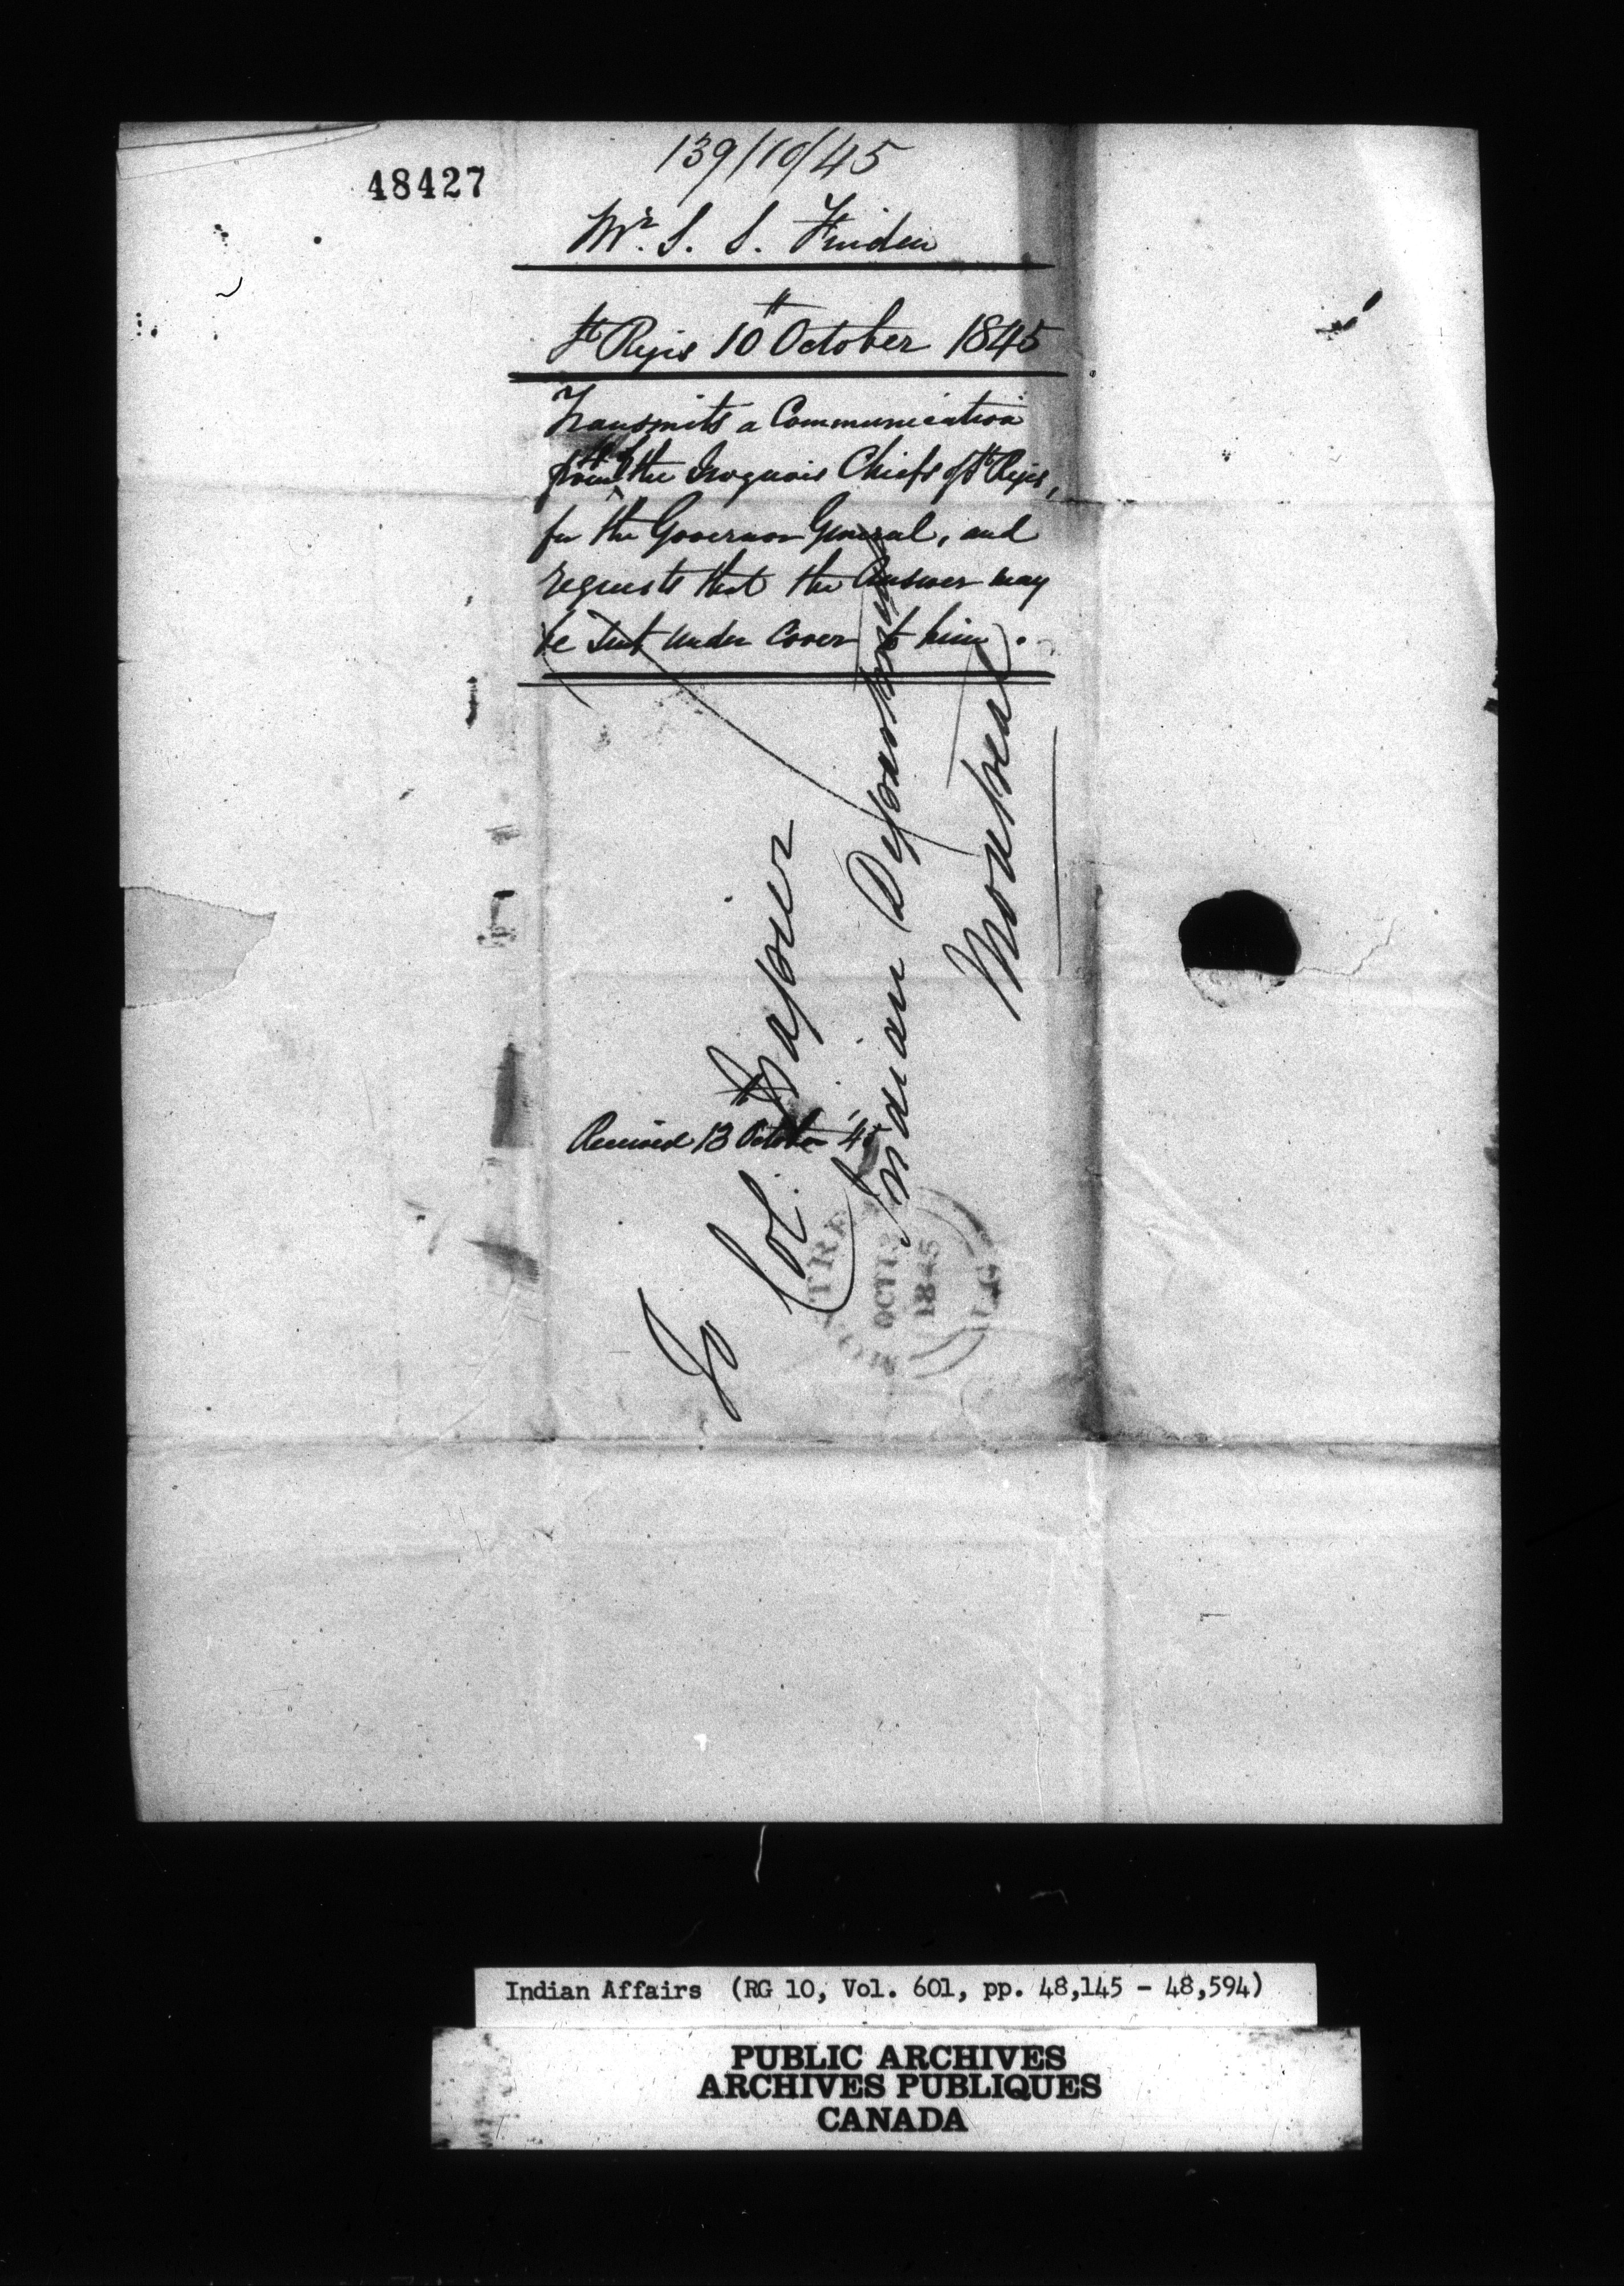 48427
139/10/45
Mr. S. S. Finden
St Regis 10th October 1845
Transmits a Communication
from 4 of the Iroquois Chiefs of St Regis,
for the Governor General, and
requests that the Answer may
be sent under cover to him.
To Col. Napier
Indian Department
Montreal
Received 13th October '45
MONTREAL
OCT 13
1845
L.C.
Indian Affairs (RG 10, Vol. 601, pp. 48,145 - 48,594)
PUBLIC ARCHIVES
ARCHIVES PUBLIQUES
CANADA